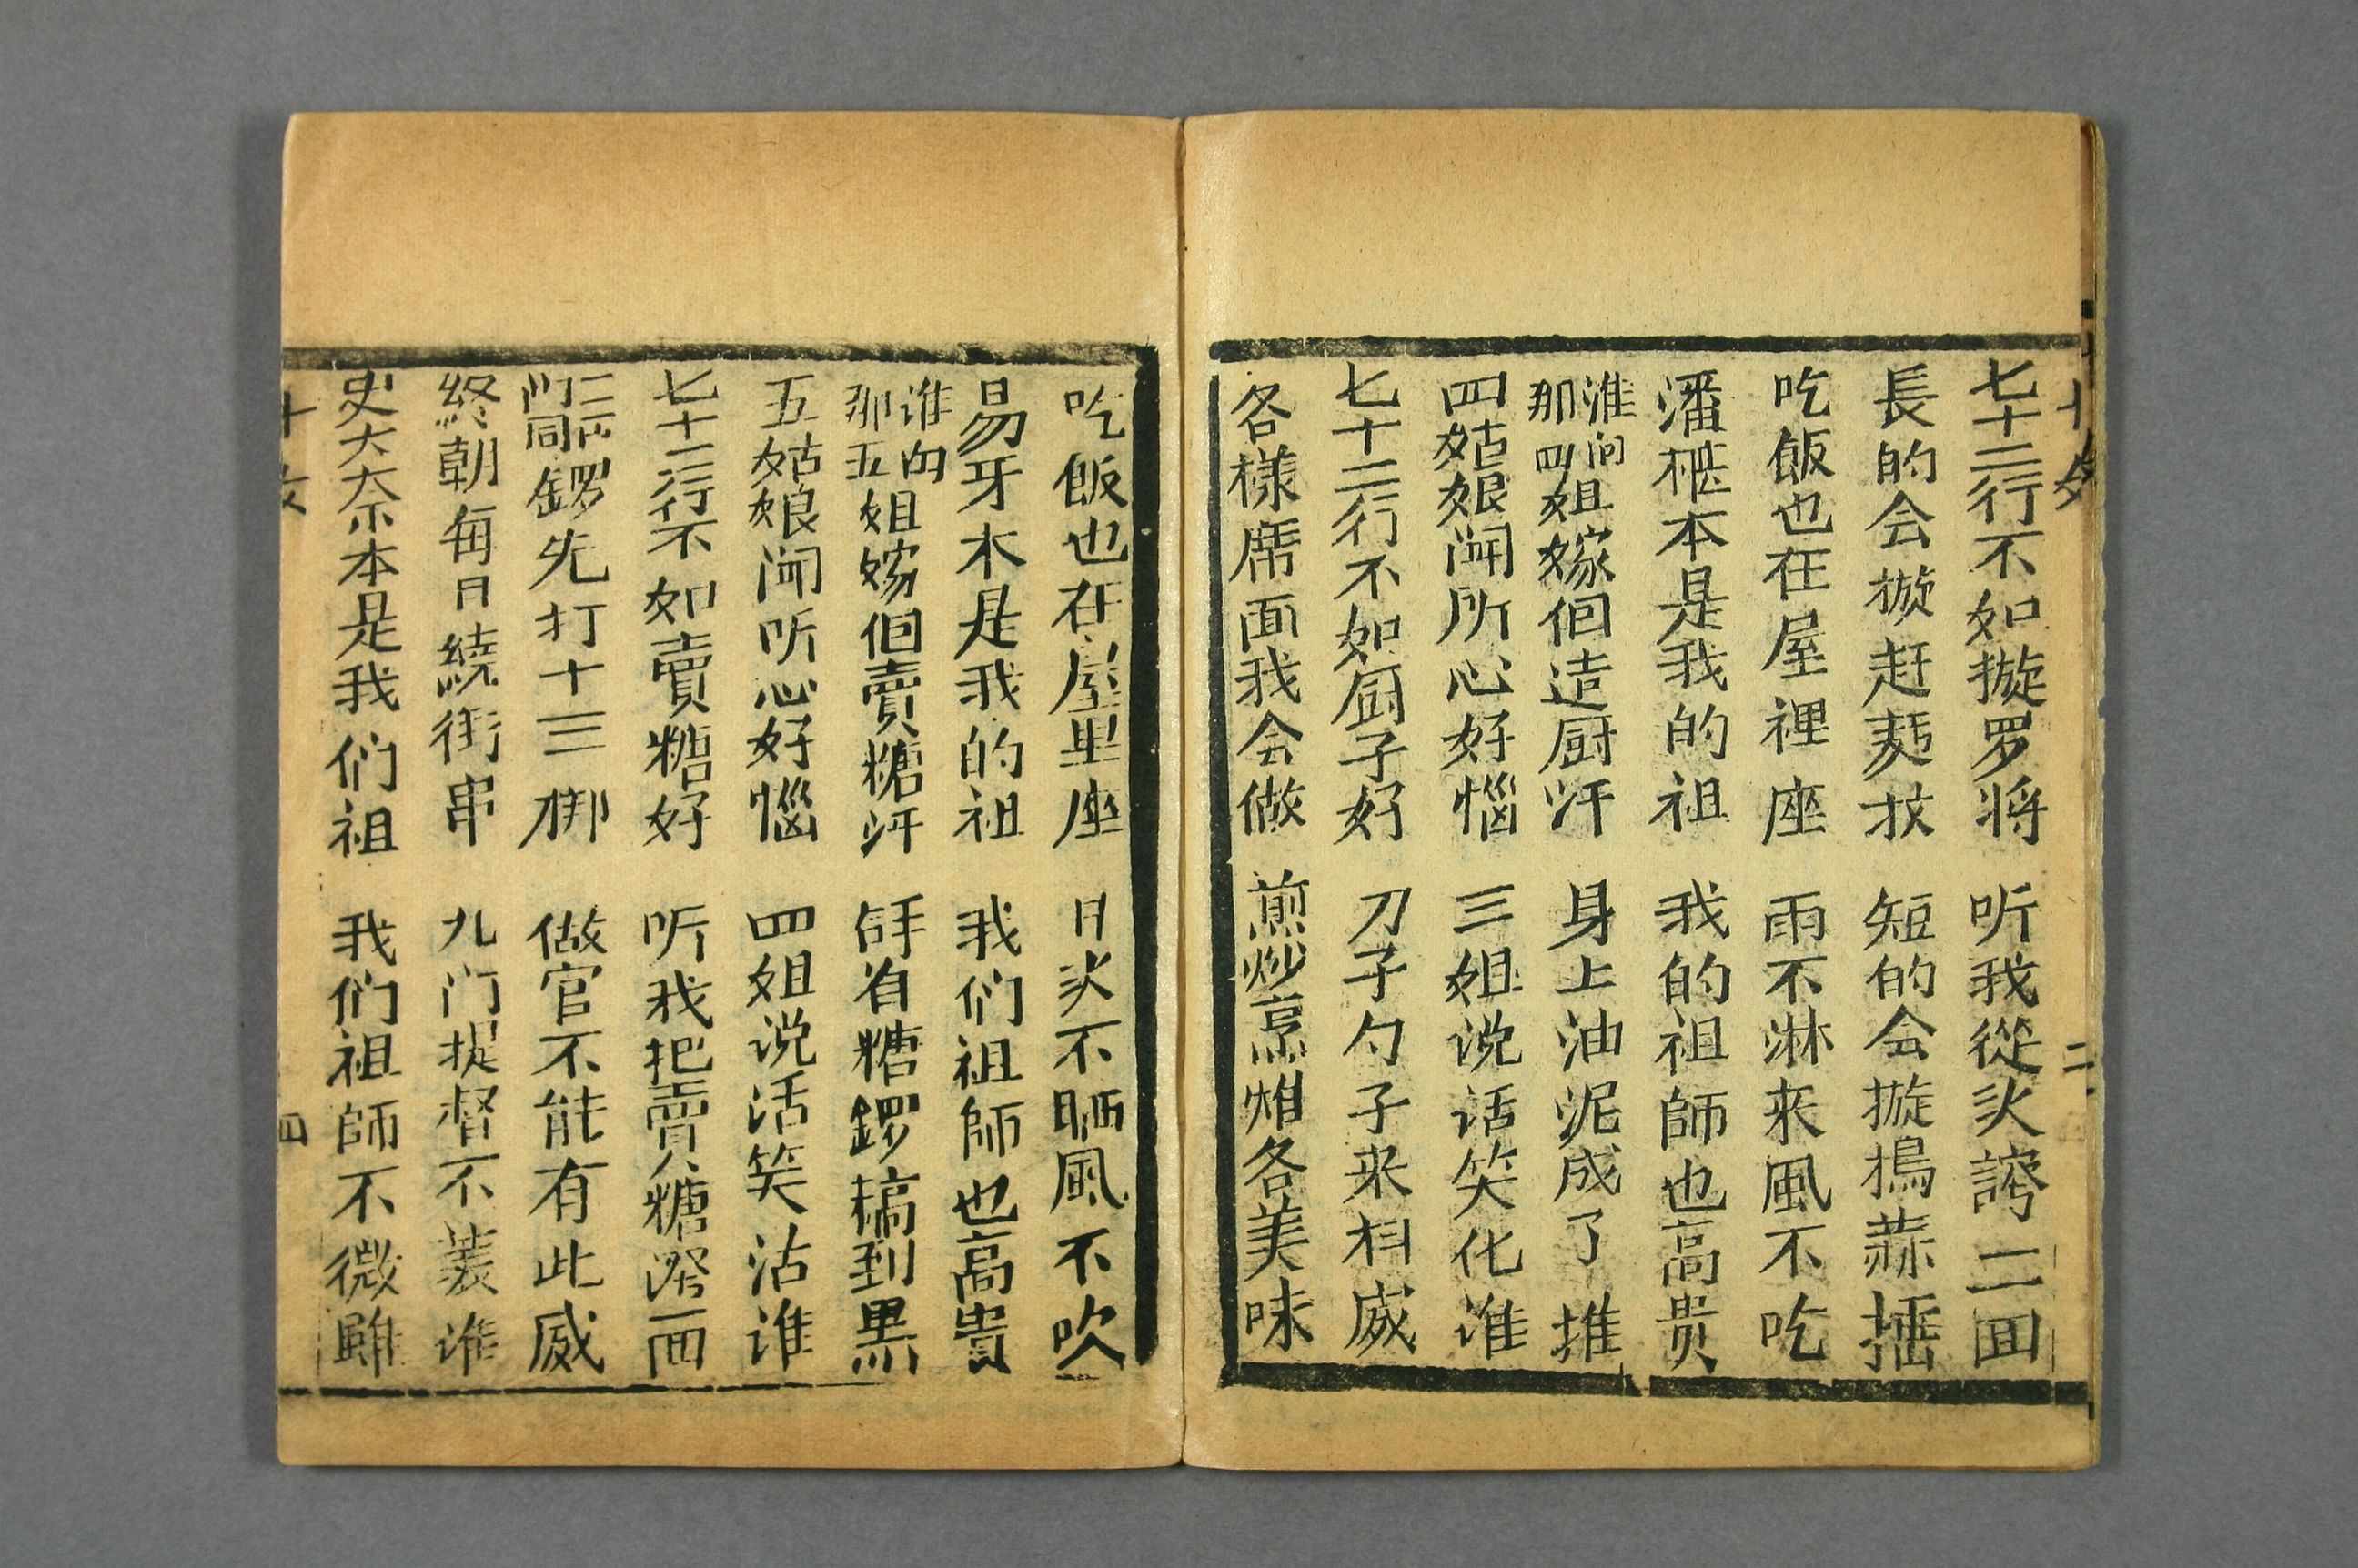 七十二行不如揓罗将　听我從头誇一回
長的会揓赶麪杖　短的会揓搗蒜捶
吃飯也在屋裡座　雨不淋来風不吃
潘㮛本是我的祖　我的祖師也高贵
淮问那四姐嫁佪造厨汗　身上油泥成了推
四姑娘闻听心好惱　三姐说话笑化谁
七十二行不如厨子好　刀子勺子来科威
各様席面我会做　煎炒烹煋各美味
吃飯也在屋里座　日头不晒風不吹
易牙本是我的祖　我们祖師也高貴
谁向那五姐嫁佪賣糖汗　有糖鑼槁到黒
五姑娘闻听心好惱　四姐说活笑沾谁
七十二行不如賣糖好　听我把賣糖一面
门同鑼先打十三梆　做官不能有此威
終朝每日繞街串　九门提督不装谁
史大奈本是我们祖　我们祖師不微雖
四